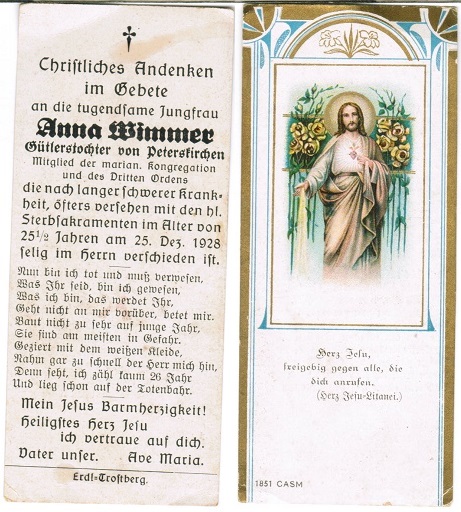 Christliches Andenken
im Gebete
an die tugendsame Jungfrau
Anna Wimmer
Gütlerstochter von Peterskirchen
Mitglied der marian. Kongregation
und des Dritten Ordens
die nach langer schwerer Krank-
heit, öfters versehen mit den hl.
Sterbsakramenten im Alter von
25 1/2 Jahren am 25. Dez. 1928
selig im Herrn verschieden ist.
Nun bin ich tot und muß verwesen,
Was Ihr seid, bin ich gewesen,
Was ich bin, das werdet Ihr,
Geht nicht an mir vorüber, betet mir.
Baut nicht zu sehr auf junge Jahr,
Sie sind am meisten in Gefahr.
Geziert mit dem weißen Kleide,
Nahm gar zu schnell der Herr mich hin,
Denn seht, ich zähl kaum 26 Jahr
Und lieg schon auf der Totenbahr.
Mein Jesus Barmherzigkeit!
Heiligstes Herz Jesu
ich vertraue auf dich.
Vater unser. Ave Maria.
Erdl-Trostberg.
Herz Jesu,
freigebig gegen alle, die
dich anrufen.
(Herz Jesu-Litanei.)
1851 CASM